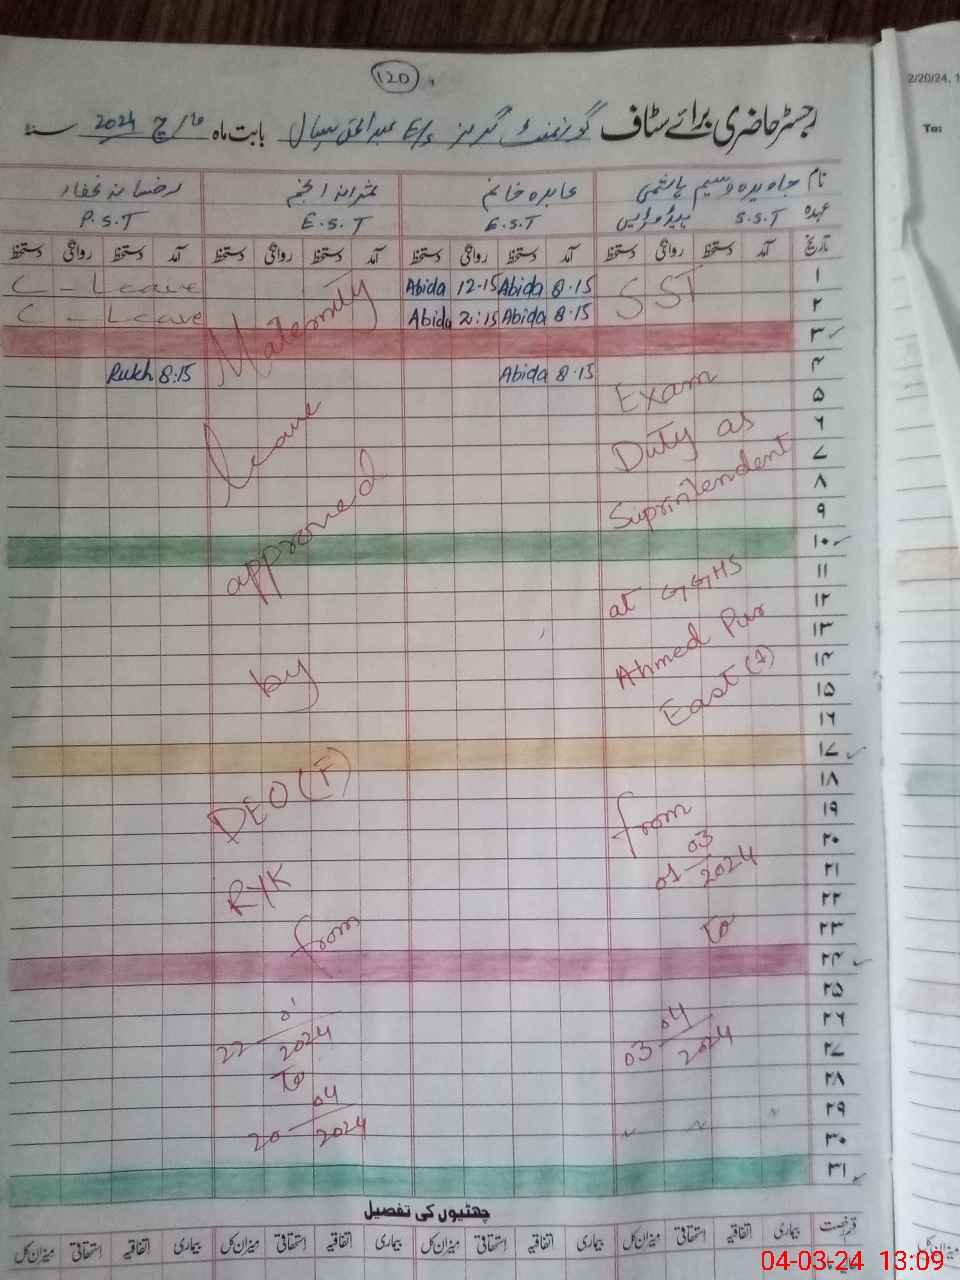 120
2/20/24, 1
To:
رجسٹر حاضری برائے سٹاف گورنمنٹ گرلز E/S عبدالحق سیال بابت ماہ مارچ 2024 سنہ
نام جاویدہ وسیم ہاشمی عابدہ خانم
عہدہ S.S.T E.S.T E.S.T P.S.T
تاریخ آمد دستخط روانگی دستخط آمد دستخط روانگی دستخط آمد دستخط روانگی دستخط آمد دستخط روانگی دستخط
۱ 8.15 Abida 12-15 Abida C - Leave
۲ 8.15 Abida 2:15 Abida C - Leave
SST
Maternity
۳
۴ 8.15 Abida 8:15 Rukh
۵ Exam
leave
۶ Duty as
۷
۸ Suprintendent
approved
۹
۱۰
۱۱ at GGHS
۱۲
۱۳ Ahmed Pur
۱۴ by
۱۵ East (1)
۱۶
۱۷
۱۸ DEO (F)
۱۹ from
۲۰
۲۱ 01 03/2024
RYK
۲۲
۲۳ To
from
۲۴
۲۵
۲۶ 22 01/2024
۲۷ 03 04/2024
To
۲۸
۲۹ 20 04/2024
۳۰
۳۱
چھٹیوں کی تفصیل
قسم رخصت بیماری اتفاقیہ استحقاقی میزان کل بیماری اتفاقیہ استحقاقی میزان کل بیماری اتفاقیہ استحقاقی میزان کل بیماری اتفاقیہ استحقاقی میزان کل
میزان کل
04-03-24 13:09